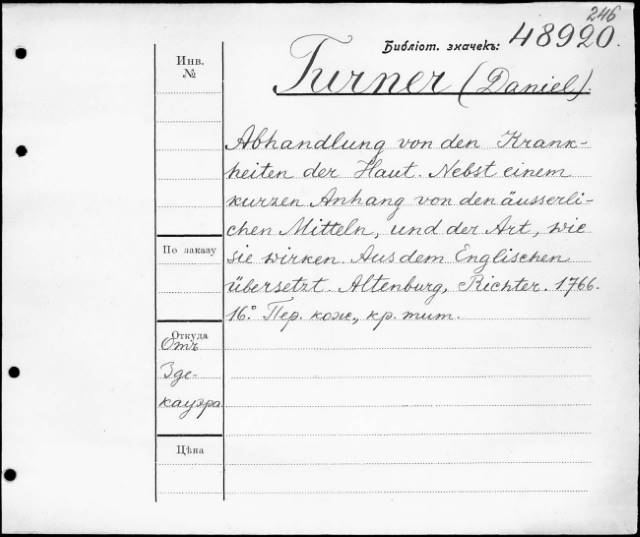 246
Библіот. значекъ: 48920.
Инв.
№
Turner (Daniel).
Abhandlung von den Krank-
heiten der Haut. Nebst einem
kurzen Anhang von den äusserli-
chen Mitteln, und der Art, wie
По заказу
sie wirken. Aus dem Englischen
übersetzt. Altenburg, Richter. 1766.
16.° Пер. кож., кр. тит.
Откуда
Отъ
Зде-
кауэра
Цѣна